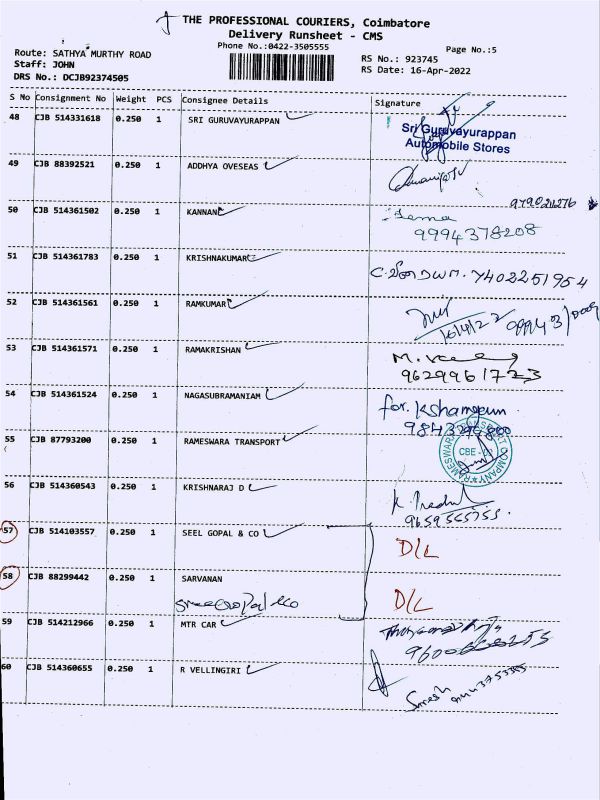 THE PROFESSIONAL COURIERS, Coimbatore
Delivery Runsheet - CMS
Phone No.:0422-3505555
Page No.:5
Route: SATHYA MURTHY ROAD
Staff: JOHN
DRS No.: DCJB92374505
RS No.: 923745
RS Date: 16-Apr-2022
S No Consignment No Weight PCS Consignee Details Signature
48 CJB 514331618 0.250 1 SRI GURUVAYURAPPAN
Sri Guruvayurappan
Automobile Stores
49 CJB 88392521 0.250 1 ADDHYA OVESEAS
50 CJB 514361502 0.250 1 KANNAN
9994378208
51 CJB 514361783 0.250 1 KRISHNAKUMAR
7402251954
52 CJB 514361561 0.250 1 RAMKUMAR
16/4/22
53 CJB 514361571 0.250 1 RAMAKRISHAN
9629961723
54 CJB 514361524 0.250 1 NAGASUBRAMANIAM
for.
55 CJB 87793200 0.250 1 RAMESWARA TRANSPORT
RAMESWARA TRANSPORT COMPANY
CBE
56 CJB 514360543 0.250 1 KRISHNARAJ D
9659565755.
57 CJB 514103557 0.250 1 SEEL GOPAL & CO
D/L
58 CJB 88299442 0.250 1 SARVANAN
D/L
59 CJB 514212966 0.250 1 MTR CAR
60 CJB 514360655 0.250 1 R VELLINGIRI
Suresh